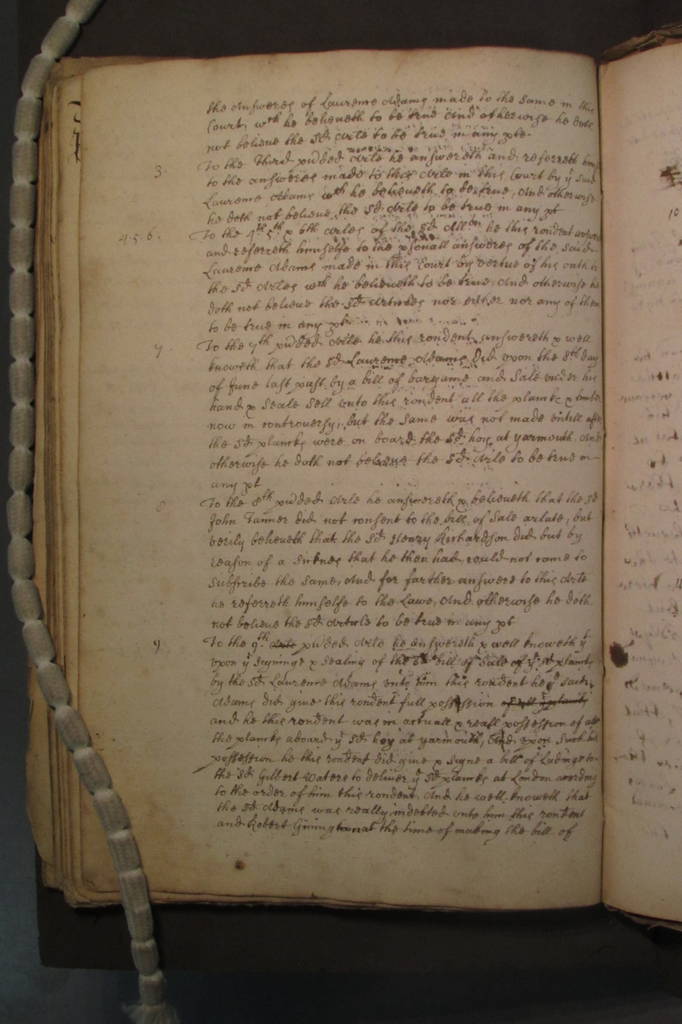 the answeres of Laurence Adams made to the same in this
Court, wch he beleeveth to be true And otherwise he doth
not beleeve the sd Arle to be true in any pte.
3. To the Third pidded Arle he answereth and referreth him
to the answeres made to this Arle in this Court by ye said
Laurence Adams wch he beleeveth to be true, And otherwise
he doth not beleeve the sd Arle to be true in any pt
4.5.6. To the 4th 5th & 6th Arles of the sd Allon he this rondent
and referreth himselfe to the psonall answeres of the said
Laurence Adams made in this Court by vertue of his oath to
the sd Arles wch he beleeveth to be true, And otherwise he
doth not beleeve the sd Articles nor either nor any of them
to be true in any pt
7 To the 7th pidded Arle he this rondent answereth & well
knoweth that the sd Laurence Adams did upon the 8th day
of June last past by a bill of bargaine and sale under his
hand & seale sell unto this rondent all the plancks &
now in controversy, but the same was not made untill after
the sd plancks were on board the sd hoy at yarmouth, And
otherwise he doth not beleeve the sd Arle to be true in
any pt
8 To the 8th pidded Arle he answereth & beleeveth that the sd
John Tanner did not consent to the bill of sale arlate, but
verily beleeveth that the sd Henry Richardson did but by
reason of a sicknes that he then had could not come to
subscribe the same, And for farther answere to this Arle
he referreth himselfe to the Lawe, And otherwise he doth
not beleeve the sd Article to be true in any pt
9. To the 9th pidded Arle he answereth & well knoweth yt
upon ye signinge & sealing of the sd bill of sale of ye sd plancks
by the sd Laurence Adams unto him this rondent he ye said
Adams did give this rondent full possession
and he this rondent was in actuall & reall possession of all
the plancks aboard ye sd hoy at yarmouth, And upon such his
possession he this rondent did give & signe a bill of Ladinge to
the sd Gilbert Waters to deliver ye sd plancks at London according
to the order of him this rondent, And he well knoweth that
the sd Adams was really indebted unto him this rondent
and Robert at the time of making the bill of